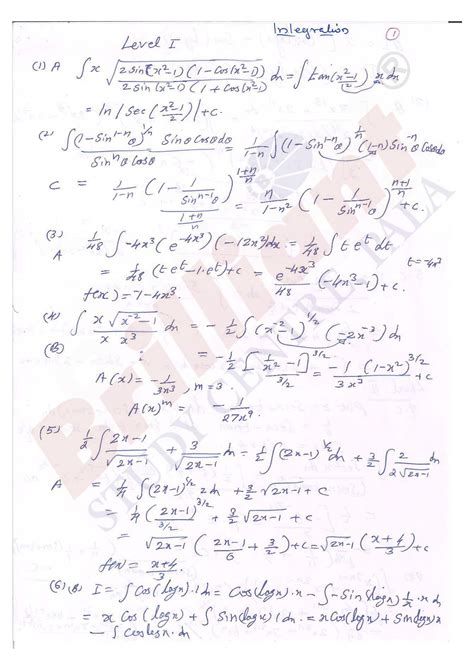 Integration
1
Level I
(1) A ∫ x √(2 sin(x²-1)(1-Cos(x²-1)) / 2 sin(x²-1)(1+Cos(x²-1))) dx = ∫ tan((x²-1)/2) x dx
= ln |Sec((x²-1)/2)| + c.
(2) ∫ (1-Sin^(1-n) θ)^(1/n) Sinθ Cosθ dθ / Sin^n θ Cosθ = 1/(1-n) ∫ (1-Sin^(1-n) θ)^(1/n) (1-n) Sin^(-n) θ Cosθ dθ
C = 1/(1-n) (1 - 1/Sin^(n-1) θ)^((1+n)/n) / ((1+n)/n) = n/(1-n²) (1 - 1/Sin^(n-1) θ)^((n+1)/n) + c.
(3) 1/48 ∫ -4x³ (e^(-4x³)) (-12x²) dx = 1/48 ∫ t e^t dt t = -4x³
A = 1/48 (t e^t - 1.e^t) + c = e^(-4x³)/48 (-4x³-1) + c
f(x) = -1-4x³
(4) ∫ x √(x^-2 -1) / x x³ dx = -1/2 ∫ (x^-2 -1)^(1/2) (-2x^-3) dx
(B) = -1/2 [1/x² -1]^(3/2) / 3/2 = -1/3x³ (1-x²)^(3/2) + c
A(x) = -1/3x³, m = 3.
A(x)^m = -1/27x⁹.
(5) 1/2 ∫ (2x-1)/√(2x-1) + 3/√(2x-1) dx = 1/2 ∫ (2x-1)^(1/2) dx + 3/2 ∫ 2/(2√(2x-1)) dx
A = 1/4 ∫ (2x-1)^(1/2) 2dx + 3/2 √(2x-1) + c
= 1/4 (2x-1)^(3/2) / 3/2 + 3/2 √(2x-1) + c
= √(2x-1) ((2x-1)/6 + 3/2) + c = √(2x-1) ((x+4)/3) + c
f(x) = (x+4)/3
(6) (B) I = ∫ Cos(logx).1dx = Cos(logx).x - ∫ -Sin(logx) 1/x . x dx
= x Cos(logx) + ∫ Sin(logx) 1dx. = x Cos(logx) + Sin(logx) x
- ∫ Cos logx. dx
Brilliant
STUDY CENTRE PALA